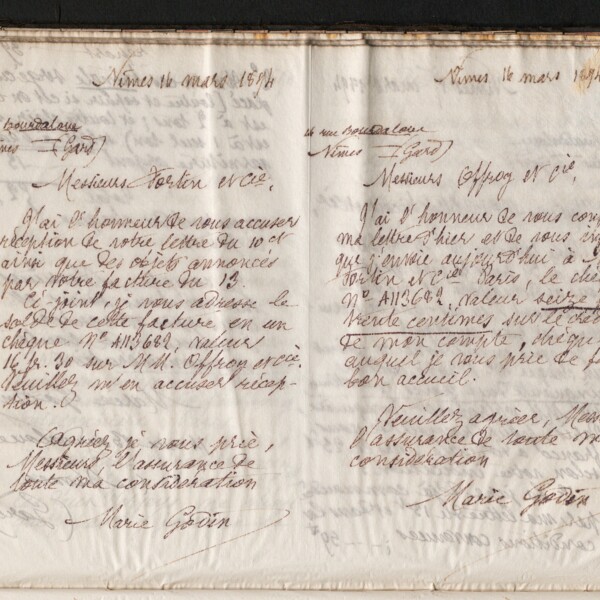 Nîmes 16 mars 1894
Bourdaloue
(Gard)
Messieurs Fortin et Cie,
J'ai l'honneur de vous accuser
réception de votre lettre du 10 ct
ainsi que des objets annoncés
par votre facture du 13.
Ci joint, je vous adresse le
solde de cette facture en un
chèque No A113682, valeur
16 fr. 30 sur M.M. Offroy et Cie.
Veuillez m'en accuser récep-
tion.
Agréez je vous prie,
Messieurs, l'assurance de
toute ma considération
Marie Godin
Nîmes 16 mars 1894
rue Bourdaloue
Nîmes (Gard)
Messieurs Offroy et Cie,
J'ai l'honneur de vous con
ma lettre d'hier et de vous in
que j'envoie aujourd'hui à
Fortin et Cie Paris, le ch
No A113682, valeur seize
trente centimes sur le
de mon compte, chèque
auquel je vous prie de f
bon accueil.
Veuillez agréer, Mess
l'assurance de toute m
considération
Marie Godin